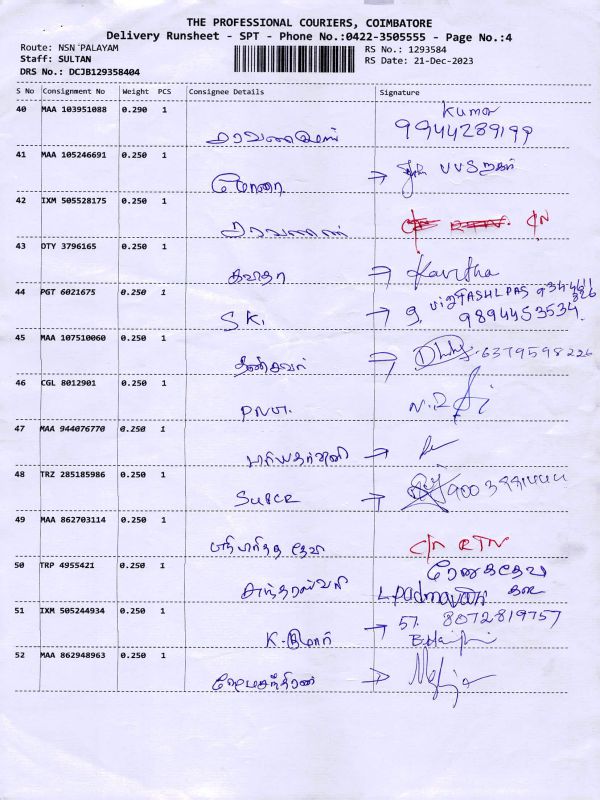 THE PROFESSIONAL COURIERS, COIMBATORE
Delivery Runsheet - SPT - Phone No.:0422-3505555 - Page No.:4
Route: NSN PALAYAM
RS No.: 1293584
Staff: SULTAN
RS Date: 21-Dec-2023
DRS No.: DCJB129358404
S No Consignment No Weight PCS Consignee Details Signature
40 MAA 103951088 0.290 1 Kumar
9944289199
41 MAA 105246691 0.250 1 VVS நகர்
42 IXM 505528175 0.250 1 சரவணன்
43 DTY 3796165 0.250 1 கவிதா Kavitha
44 PGT 6021675 0.250 1 S.K.
9894453534
45 MAA 107510060 0.250 1 6379598226
46 CGL 8012901 0.250 1
47 MAA 944076770 0.250 1 பிரியதர்ஷினி
48 TRZ 285185986 0.250 1
49 MAA 862703114 0.250 1 C/N RTN
50 TRP 4955421 0.250 1 L.Padmavathi
51 IXM 505244934 0.250 1 K.குமார் 8072819757
52 MAA 862948963 0.250 1